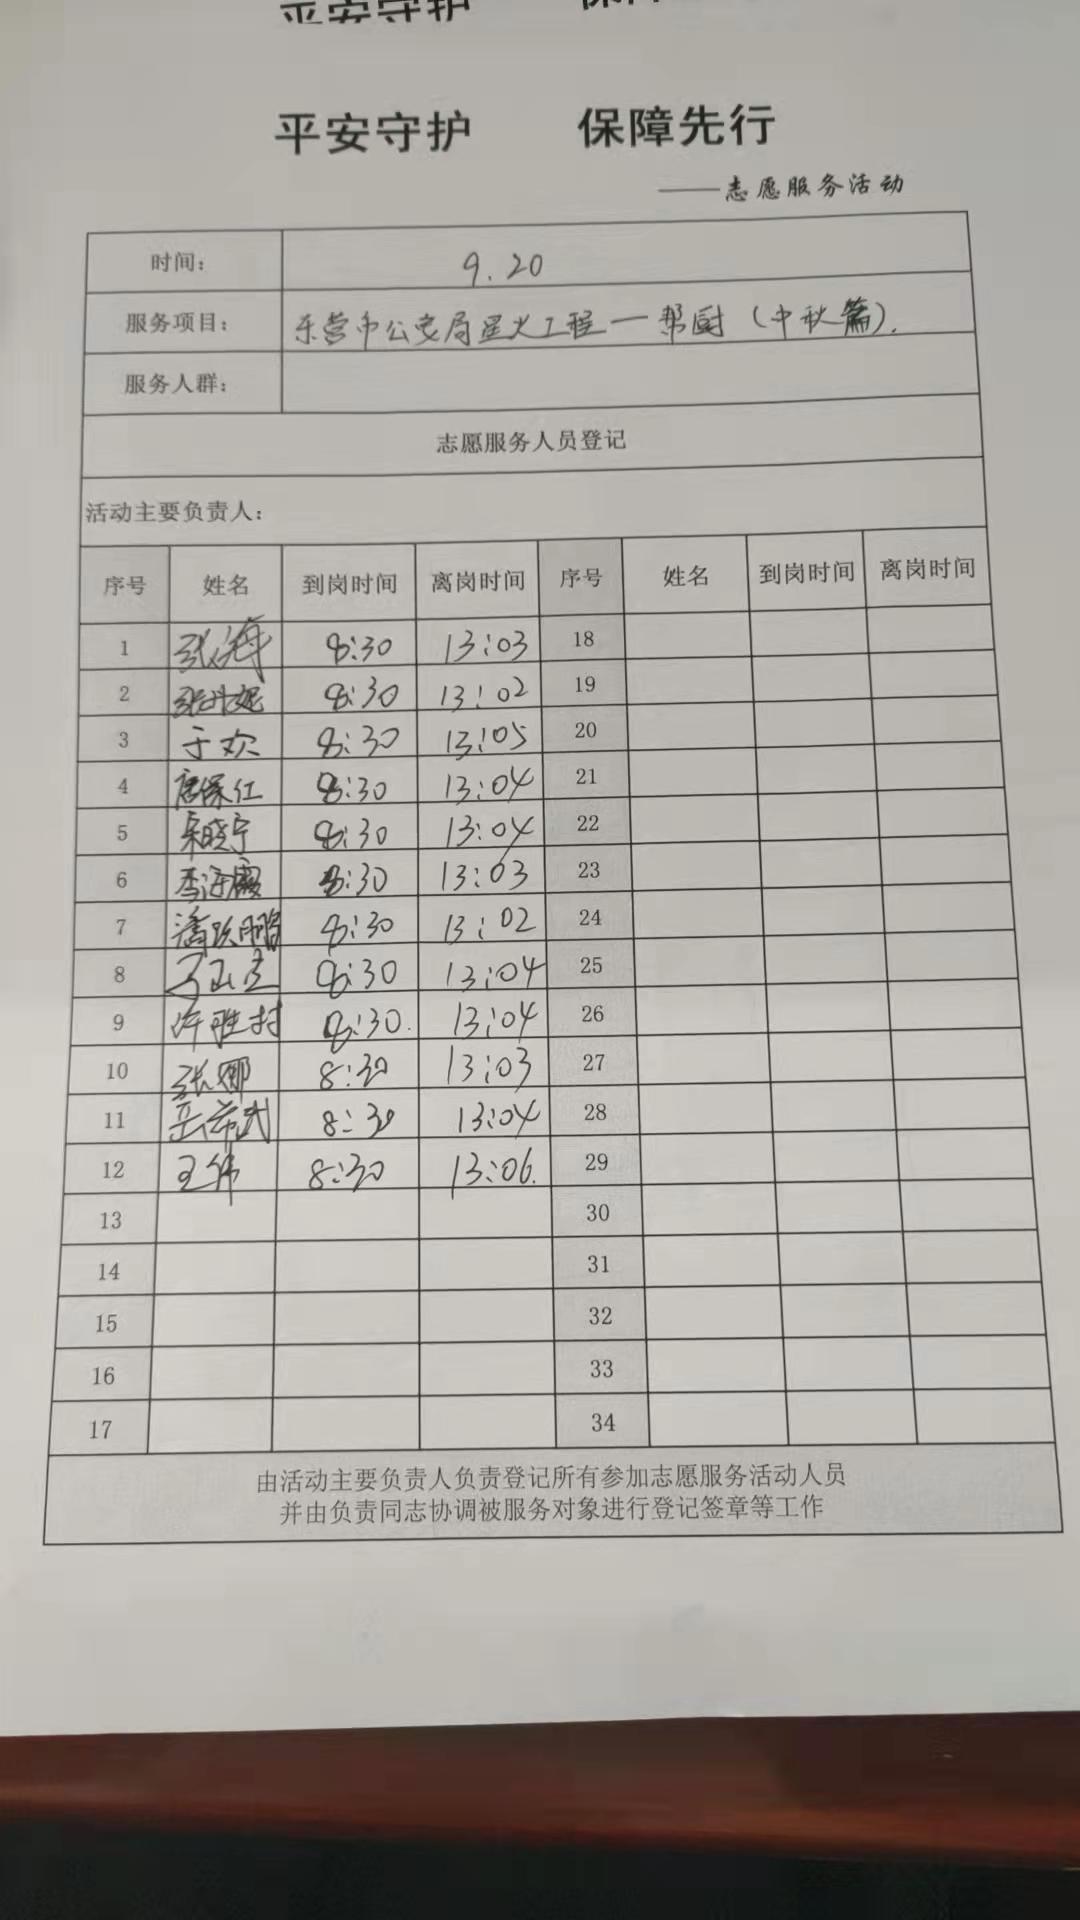 平安守护 保障先行
平安守护 保障先行
——志愿服务活动
时间： 9.20
服务项目： 东营市公安局星火工程一帮厨（中秋篇）.
服务人群：
志愿服务人员登记
活动主要负责人：
序号 姓名 到岗时间 离岗时间 序号 姓名 到岗时间 离岗时间
1 张海 8:30 13:03 18
2 张丹妮 8:30 13:02 19
3 于欢 8:30 13:05 20
4 唐保仁 8:30 13:04 21
5 宋晓宁 8:30 13:04 22
6 8:30 13:03 23
7 潘跃鹏 8:30 13:02 24
8 8:30 13:04 25
9 许胜村 8:30. 13:04 26
10 张娜 8:30 13:03 27
11 8:30 13:04 28
12 王伟 8:30 13:06. 29
13 30
14 31
15 32
16 33
17 34
由活动主要负责人负责登记所有参加志愿服务活动人员
并由负责同志协调被服务对象进行登记签章等工作